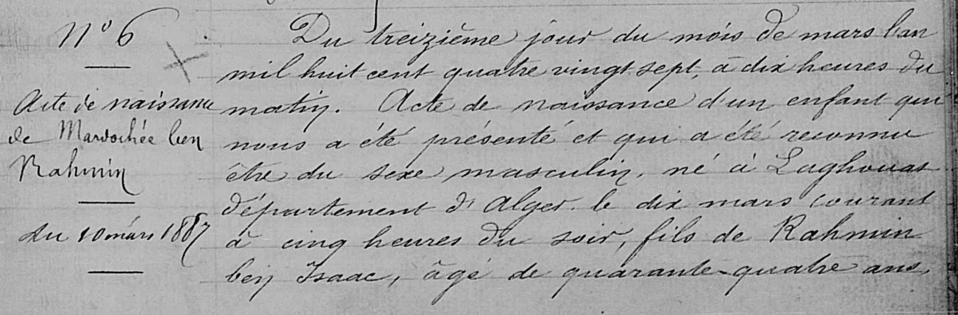 N° 6
Acte de naissance
de Mardochée ben
Rahmin
du 10 mars 1887
Du treizième jour du mois de mars l'an
mil huit cent quatre vingt sept, à dix heures du
matin. Acte de naissance d'un enfant qui
nous a été présenté et qui a été reconnu
être du sexe masculin, né à Laghouat
département d'Alger le dix mars courant
à cinq heures du soir, fils de Rahmin
ben Isaac, âgé de quarante-quatre ans,